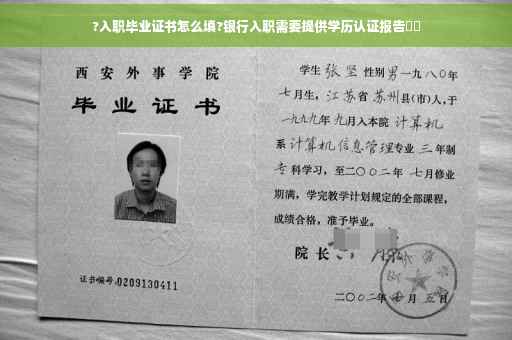 ?入职毕业证书怎么填?银行入职需要提供学历认证报告
西安外事学院
毕业证书
证书编号:0209130411
学生张坚性别男一九八〇年
七月生,江苏省苏州县(市)人,于
一九九九年九月入本院计算机
系计算机信息管理专业三年制
专科学习,至二〇〇二年七月修业
期满,学完教学计划规定的全部课程,
成绩合格,准予毕业。
院长
二〇〇二年七月五日